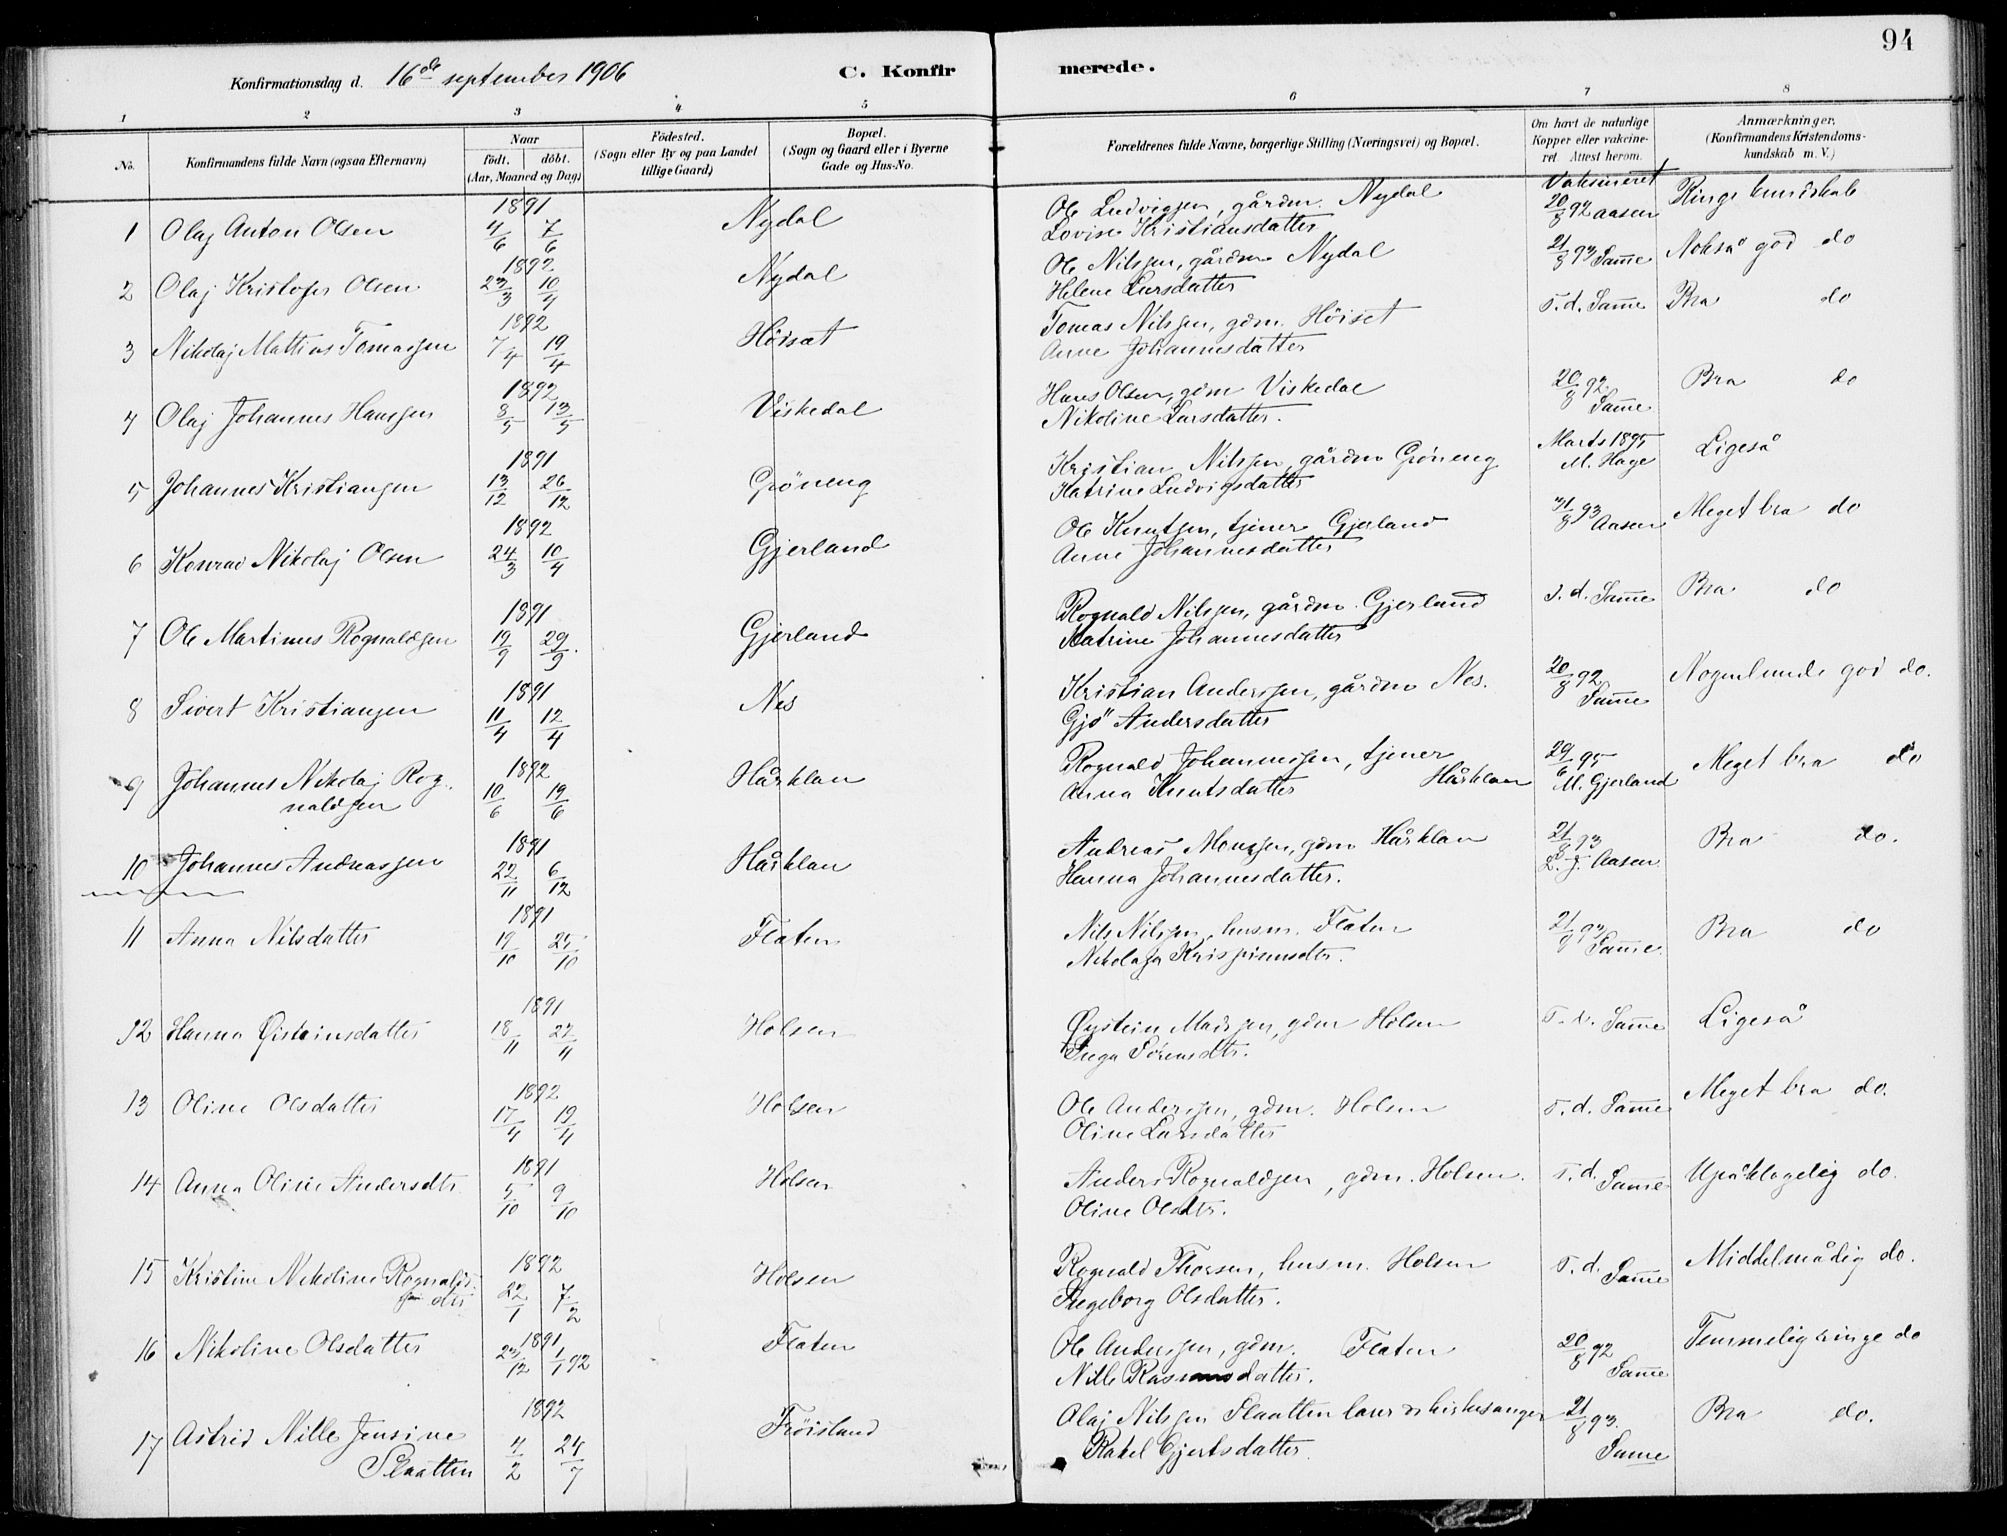 94
Konfirmationsdag d. 16de september 1906 C. Konfirmerede.
1 2 3 4 5 6 7 8
No. Konfirmandens fulde Navn (ogsaa Efternavn) Naar født. døbt. (Aar, Maaned og Dag) Fødested. (Sogn eller By og paa Landet tillige Gaard) Bopæl. (Sogn og Gaard eller i Byerne Gade og Hus-No. Forældrenes fulde Navne, borgerlige Stilling (Næringsvei) og Bopæl. Om havt de naturlige Kopper eller vakcineret Attest herom. Anmærkninger, (Konfirmandens Kristendomskundskab m. V.)
1 Olaj Anton Olsen 1891 4/6 7/6 Nydal Ole Ludvigsen, gårdm. Nydal Vaksineret 20/8 92 Aasen Ringe kundskab
Lovise Kristiansdatter
2 Olaj Kristofer Olsen 1892 23/3 10/4 Nydal Ole Nilsjen, gårdm Nydal 21/8 93 Same Nokså god do
Helene Larsdatter
3 Nikolaj Mattias Tomasjen 1892 7/4 19/4 Höiset Tomas Nilsjen, gdm. Höiset s.d. Same Bra do
Anne Johannesdatter
4 Olaj Johannes Hansjen 1892 8/5 13/5 Viskedal Hans Olsen, gdm Viskedal 20/8 92 Same Bra do
Nikoline Larsdatter.
5 Johannes Kristiansen 1891 13/12 26/12 Gröneng Kristian Nilsjen gårdm Gröneng Marts 1895 M. Hage Ligeså
Katrine Ludvigsdatter
6 Konrad Nikolaj Olsen 1892 24/3 10/4 Gjerland Ole Knutsjen, tjener Gjerland 31/8 93 Aasen Meget bra do
Anne Johannesdatter
7 Ole Martinus Rognaldsjen 1891 19/9 29/9 Gjerland Rognald Nilsjen, gårdm. Gjerland s.d. Same Bra do
Katrine Johannesdatter
8 Sivert Kristiansen 1891 11/4 12/4 Nes Kristian Andersjen, gårdm Nes. 20/8 92 Same Nogenlunde god do.
Gjö Andersdatter
9 Johannes Nikolaj Rognaldsjen 1892 10/6 19/6 Hårklau Rognald Johannesjen, tjener Hårklau 29/6 95 M. Gjerland Meget bra do
Anna Knutsdatter
10 Johannes Andreasjen 1891 22/11 6/12 Hårklau Andreas Monsjen, gdm Hårklau 21/8 93 L. J. Aasen Bra do.
Hanna Johannesdatter.
11 Anna Nilsdatter 1891 19/10 25/10 Flaten Nils Nilsjen, husm. Flaten 21/8 93 Same Bra do
Nikolaja Krispinusdtr.
12 Hanna Øisteinsdatter 1891 18/11 22/11 Holsen Øystein Madsjen, gdm Holsen s.d. Same Ligeså
Inga Sörensdtr.
13 Oline Olsdatter 1892 17/4 19/4 Holsen Ole Andersjen, gdm. Holsen s.d. Same Meget bra do.
Oline Larsdatter
14 Anna Oline Andersdtr 1891 5/10 9/10 Holsen Anders Rognaldsjen, gdm. Holsen. s.d. Same Upåklagelig do.
Oline Olsdtr.
15 Kristine Nikoline Rognaldsdtr 1892 22/1 7/2 Holsen Rognald Thorsen, husm. Holsen s.d. Same Middelmådig do.
Ingeborg Olsdatter.
16 Nikoline Olsdatter 1891 23/12 1/1 92 Flaten Ole Andersjen, gdm. Flaten 20/8 92 Same Temmelig ringe do
Nille Rasmusdatter.
17 Astrid Nille Jensine Slaatten 1892 4/2 24/7 Fröisland Olaj Nilsjen Slaatten lærer og kirkesanger 21/8 93. Same Bra do.
Rakel Gjertsdatter.